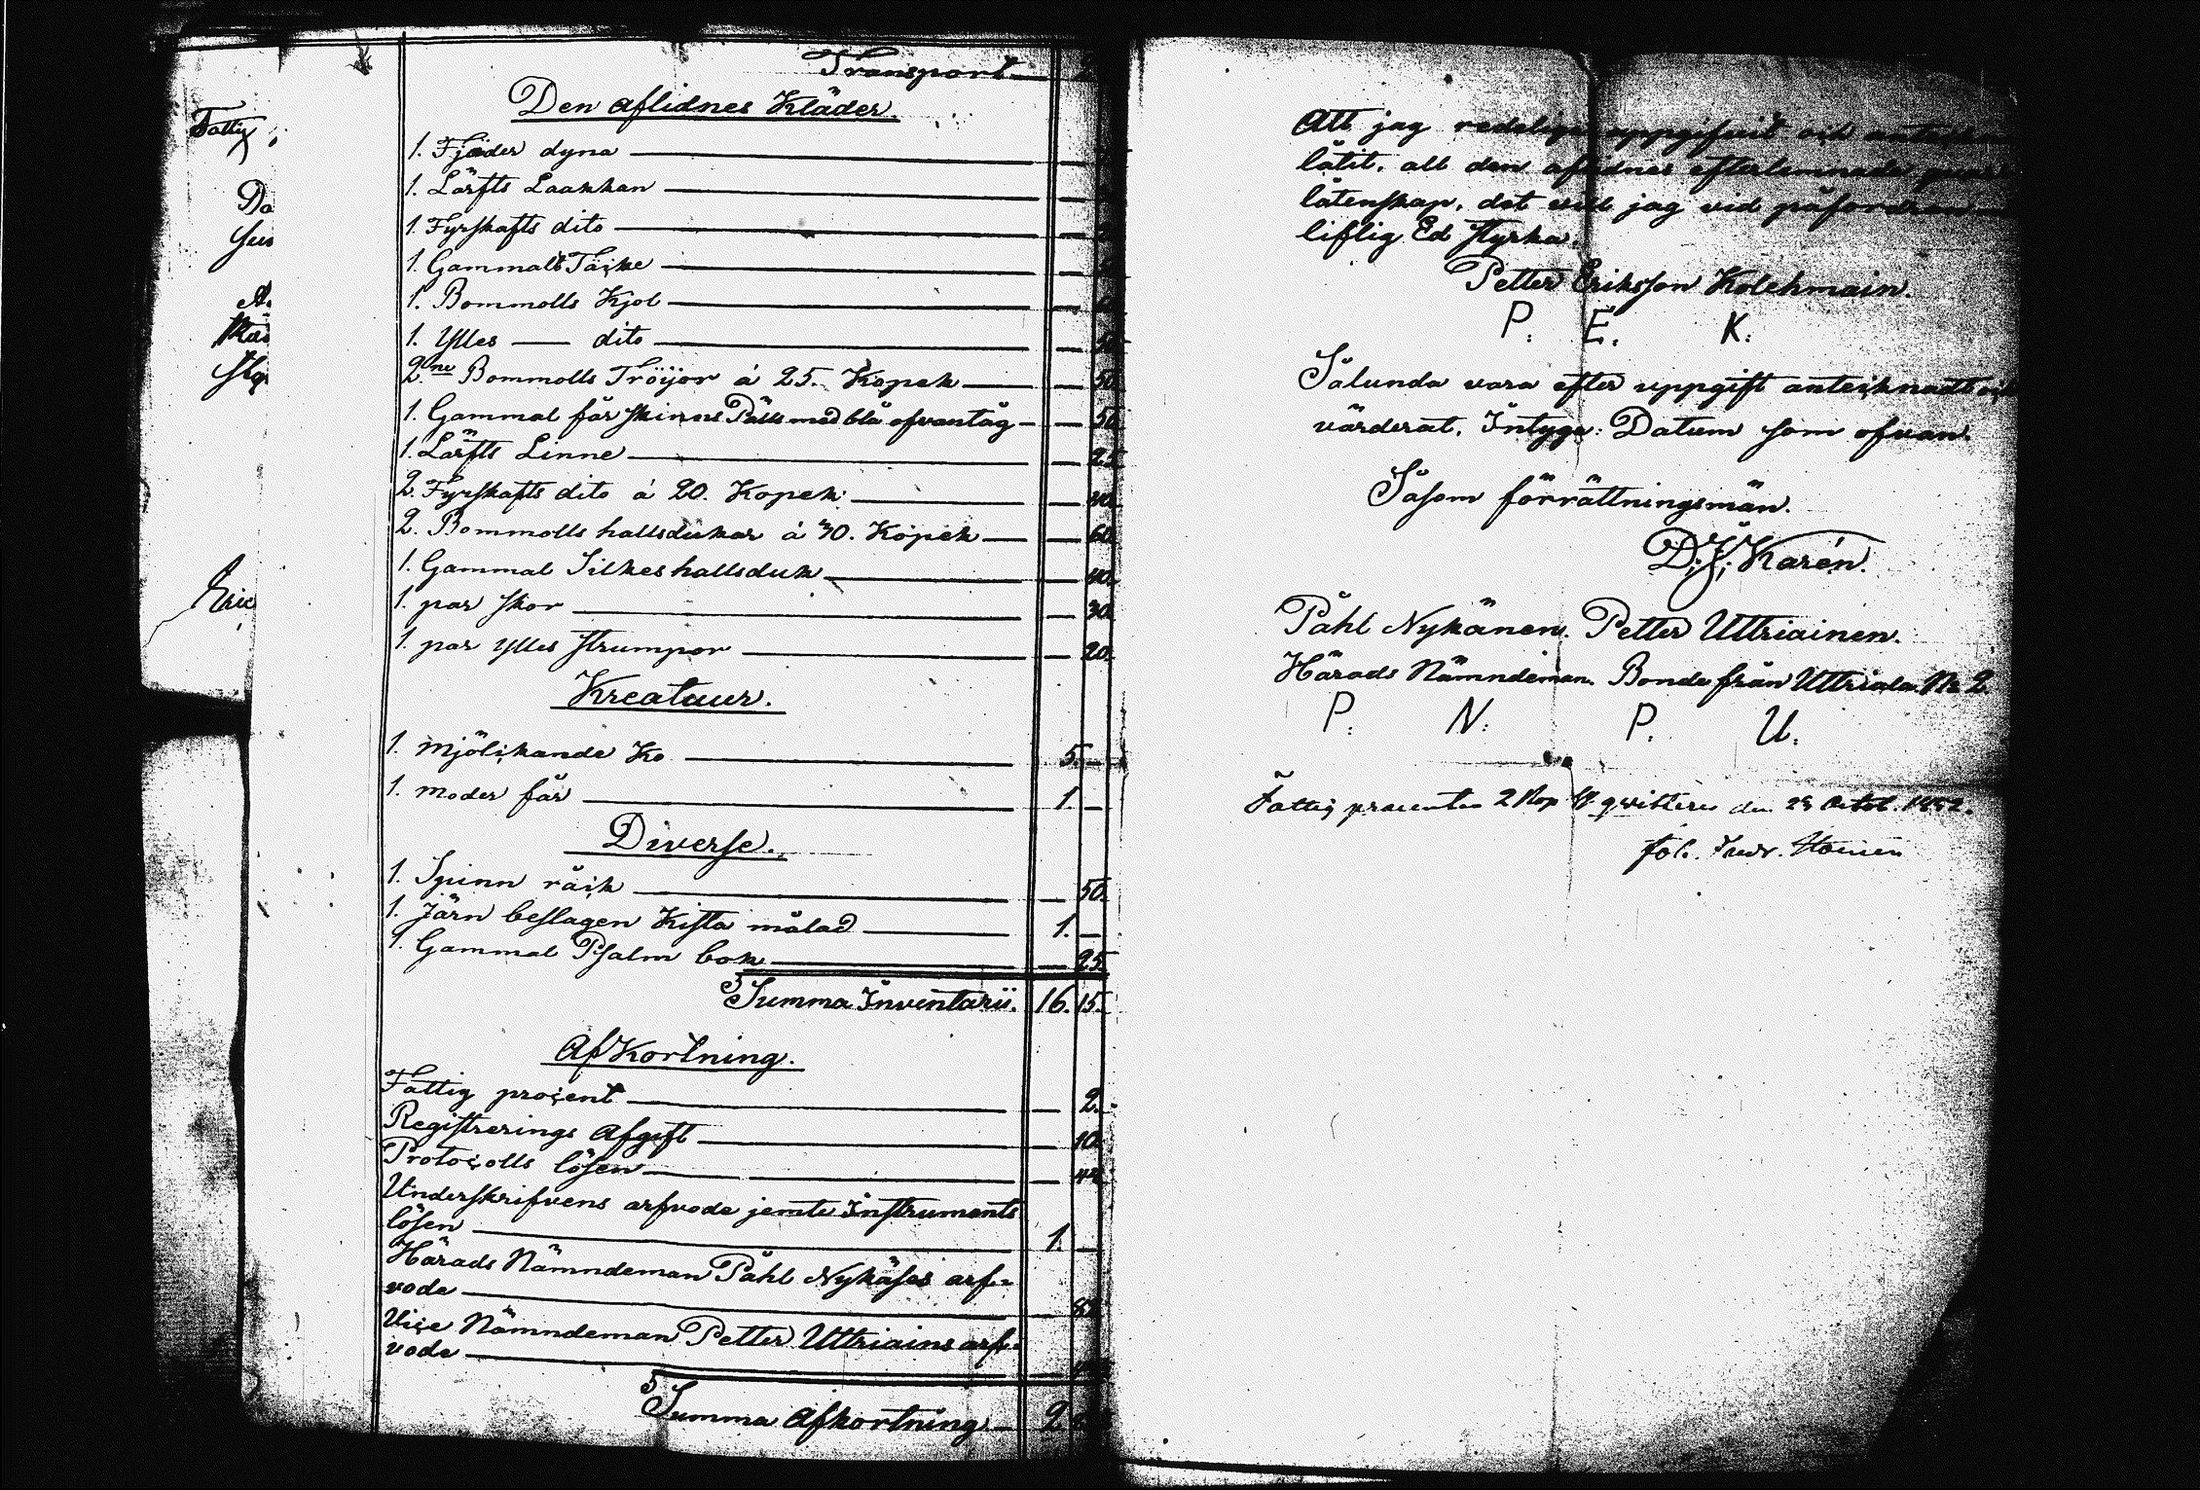 Transport
Den aflidnes Kläder.
1. Fjäder dyna
1. Lärfts Laakkan
1. Fyrskafts dito
1. Gammalt Täcke
1. Bommolls Kjol
1. Ylles — dito — 50.
2ne Bommolls Tröijor á 25. Kopek — 50.
1. Gammal får skinns Pälls med blå ofvantåg — 50.
1. Lärfts Linne — 25.
2. Fyrskafts dito á 20. Kopek — 40.
2. Bommolls hallsdukar á 30. Kopek — 60.
1. Gammal Silkes hallsduk — 40.
1. par skor — 30.
1. par ylles strumpor — 20.
Kreatuur.
1. mjölckande Ko 5. —
1. moder får 1. —
Diverse.
1. Spinn råck — 50.
1. Järn beslagen Kista målad 1. —
1. Gammal Psalm bok — 25.
Summa Inventarii. 16. 15.
AfKortning.
Fattig procent — 2.
Registrerings Afgift — 10.
Protocolls lösen
Underskrifvens arfvode jemte Instruments
lösen 1. —
Härads Nämndeman Påhl Nykäses arf-
vode
Vice Nämndeman Petter Uttriains arf-
vode
Summa Afkortning 2.
Fattig
Att jag redeligen uppgifvit och
låtit, all den aflidnes efterlemnade
låtenskap, det vill jag vid påfordran
liflig Ed styrka.
Petter Eriksson Kolehmain.
P. E. K.
Sålunda vara efter uppgift anteicknadt och
värderat, Intyga: Datum som ofvan.
Såsom förrättningsmän.
D. J. Karén.
Påhl Nykänen. Petter Uttriainen.
Härads Nämndeman. Bonde från Uttriala No 2.
P. N. P. U.
Fattig procenten 2 Kop Sr qvitteras den 23 Octob. 1852.
Joh. Fredr.